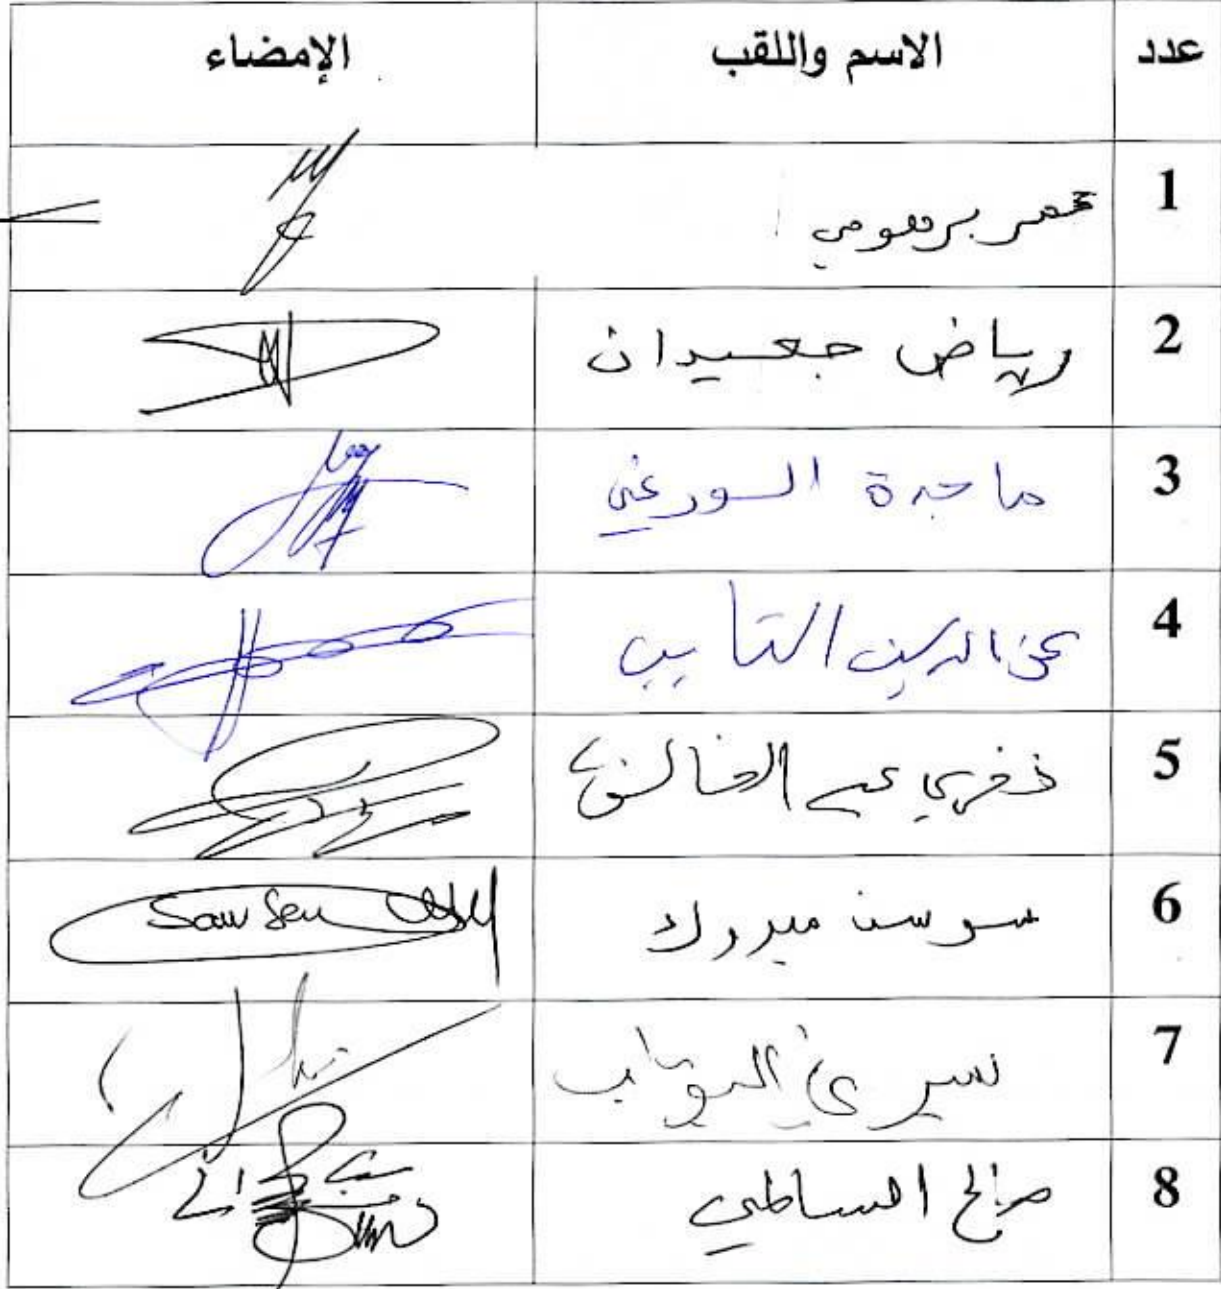 عدد الاسم واللقب الإمضاء
1 عمر برهومي
2 رياض جعيدان
3 ماجدة الورغي
4 عز الدين التايب
5 فخري عبد الخالق
6 سوسن مبروك Sawsen
7 يسرى البواب
8 صالح السباطي